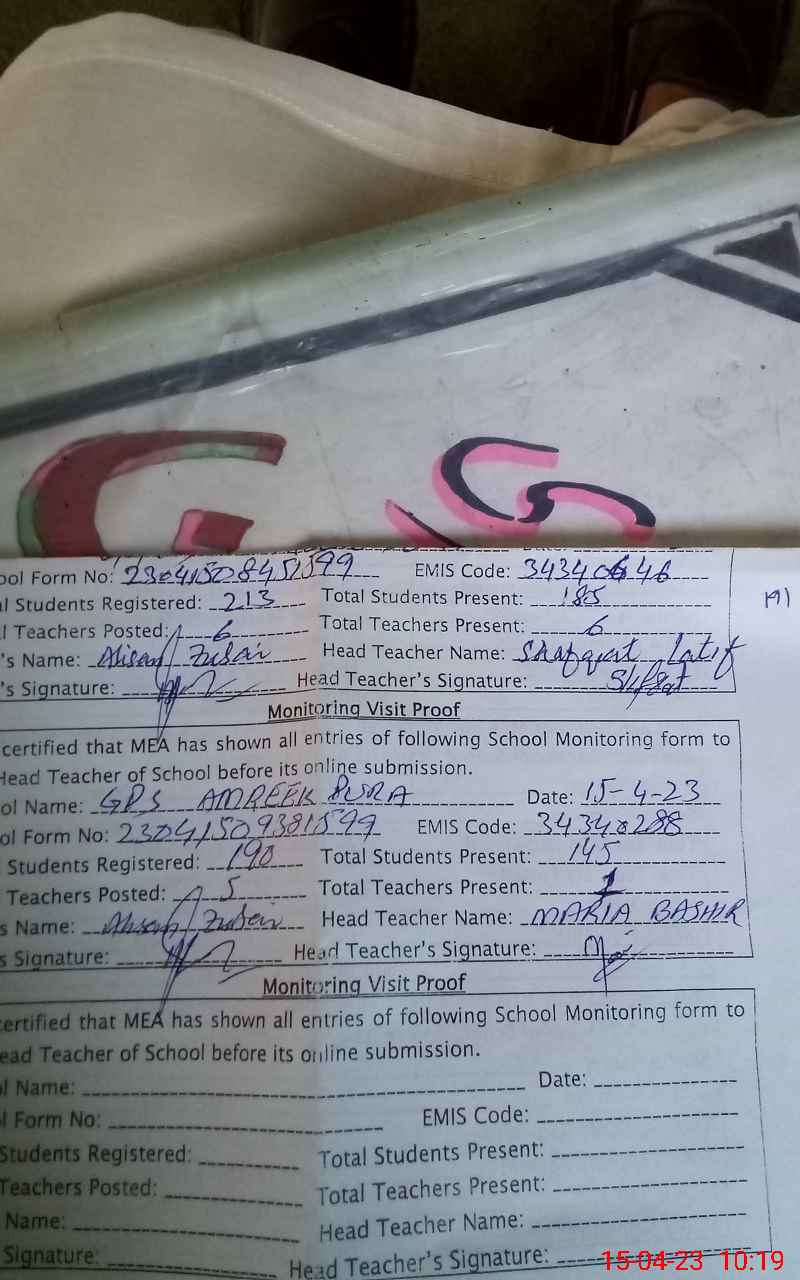 ool Form No: 230415084511599 EMIS Code: 34340646
l Students Registered: 213 Total Students Present: 185
l Teachers Posted: 6 Total Teachers Present: 6
's Name: Head Teacher Name: Shafquat Latif
's Signature: Head Teacher's Signature:
Monitoring Visit Proof
certified that MEA has shown all entries of following School Monitoring form to
Head Teacher of School before its online submission.
ol Name: GPS AMREEK PURA Date: 15-4-23
ool Form No: 230415093811599 EMIS Code: 34340288
Students Registered: 190 Total Students Present: 145
Teachers Posted: 5 Total Teachers Present: 1
s Name: Head Teacher Name: MARIA BASHIR
s Signature: Head Teacher's Signature:
Monitoring Visit Proof
certified that MEA has shown all entries of following School Monitoring form to
ead Teacher of School before its online submission.
l Name: Date:
l Form No: EMIS Code:
Students Registered: Total Students Present:
Teachers Posted: Total Teachers Present:
Name: Head Teacher Name:
Signature: Head Teacher's Signature:
15-04-23 10:19